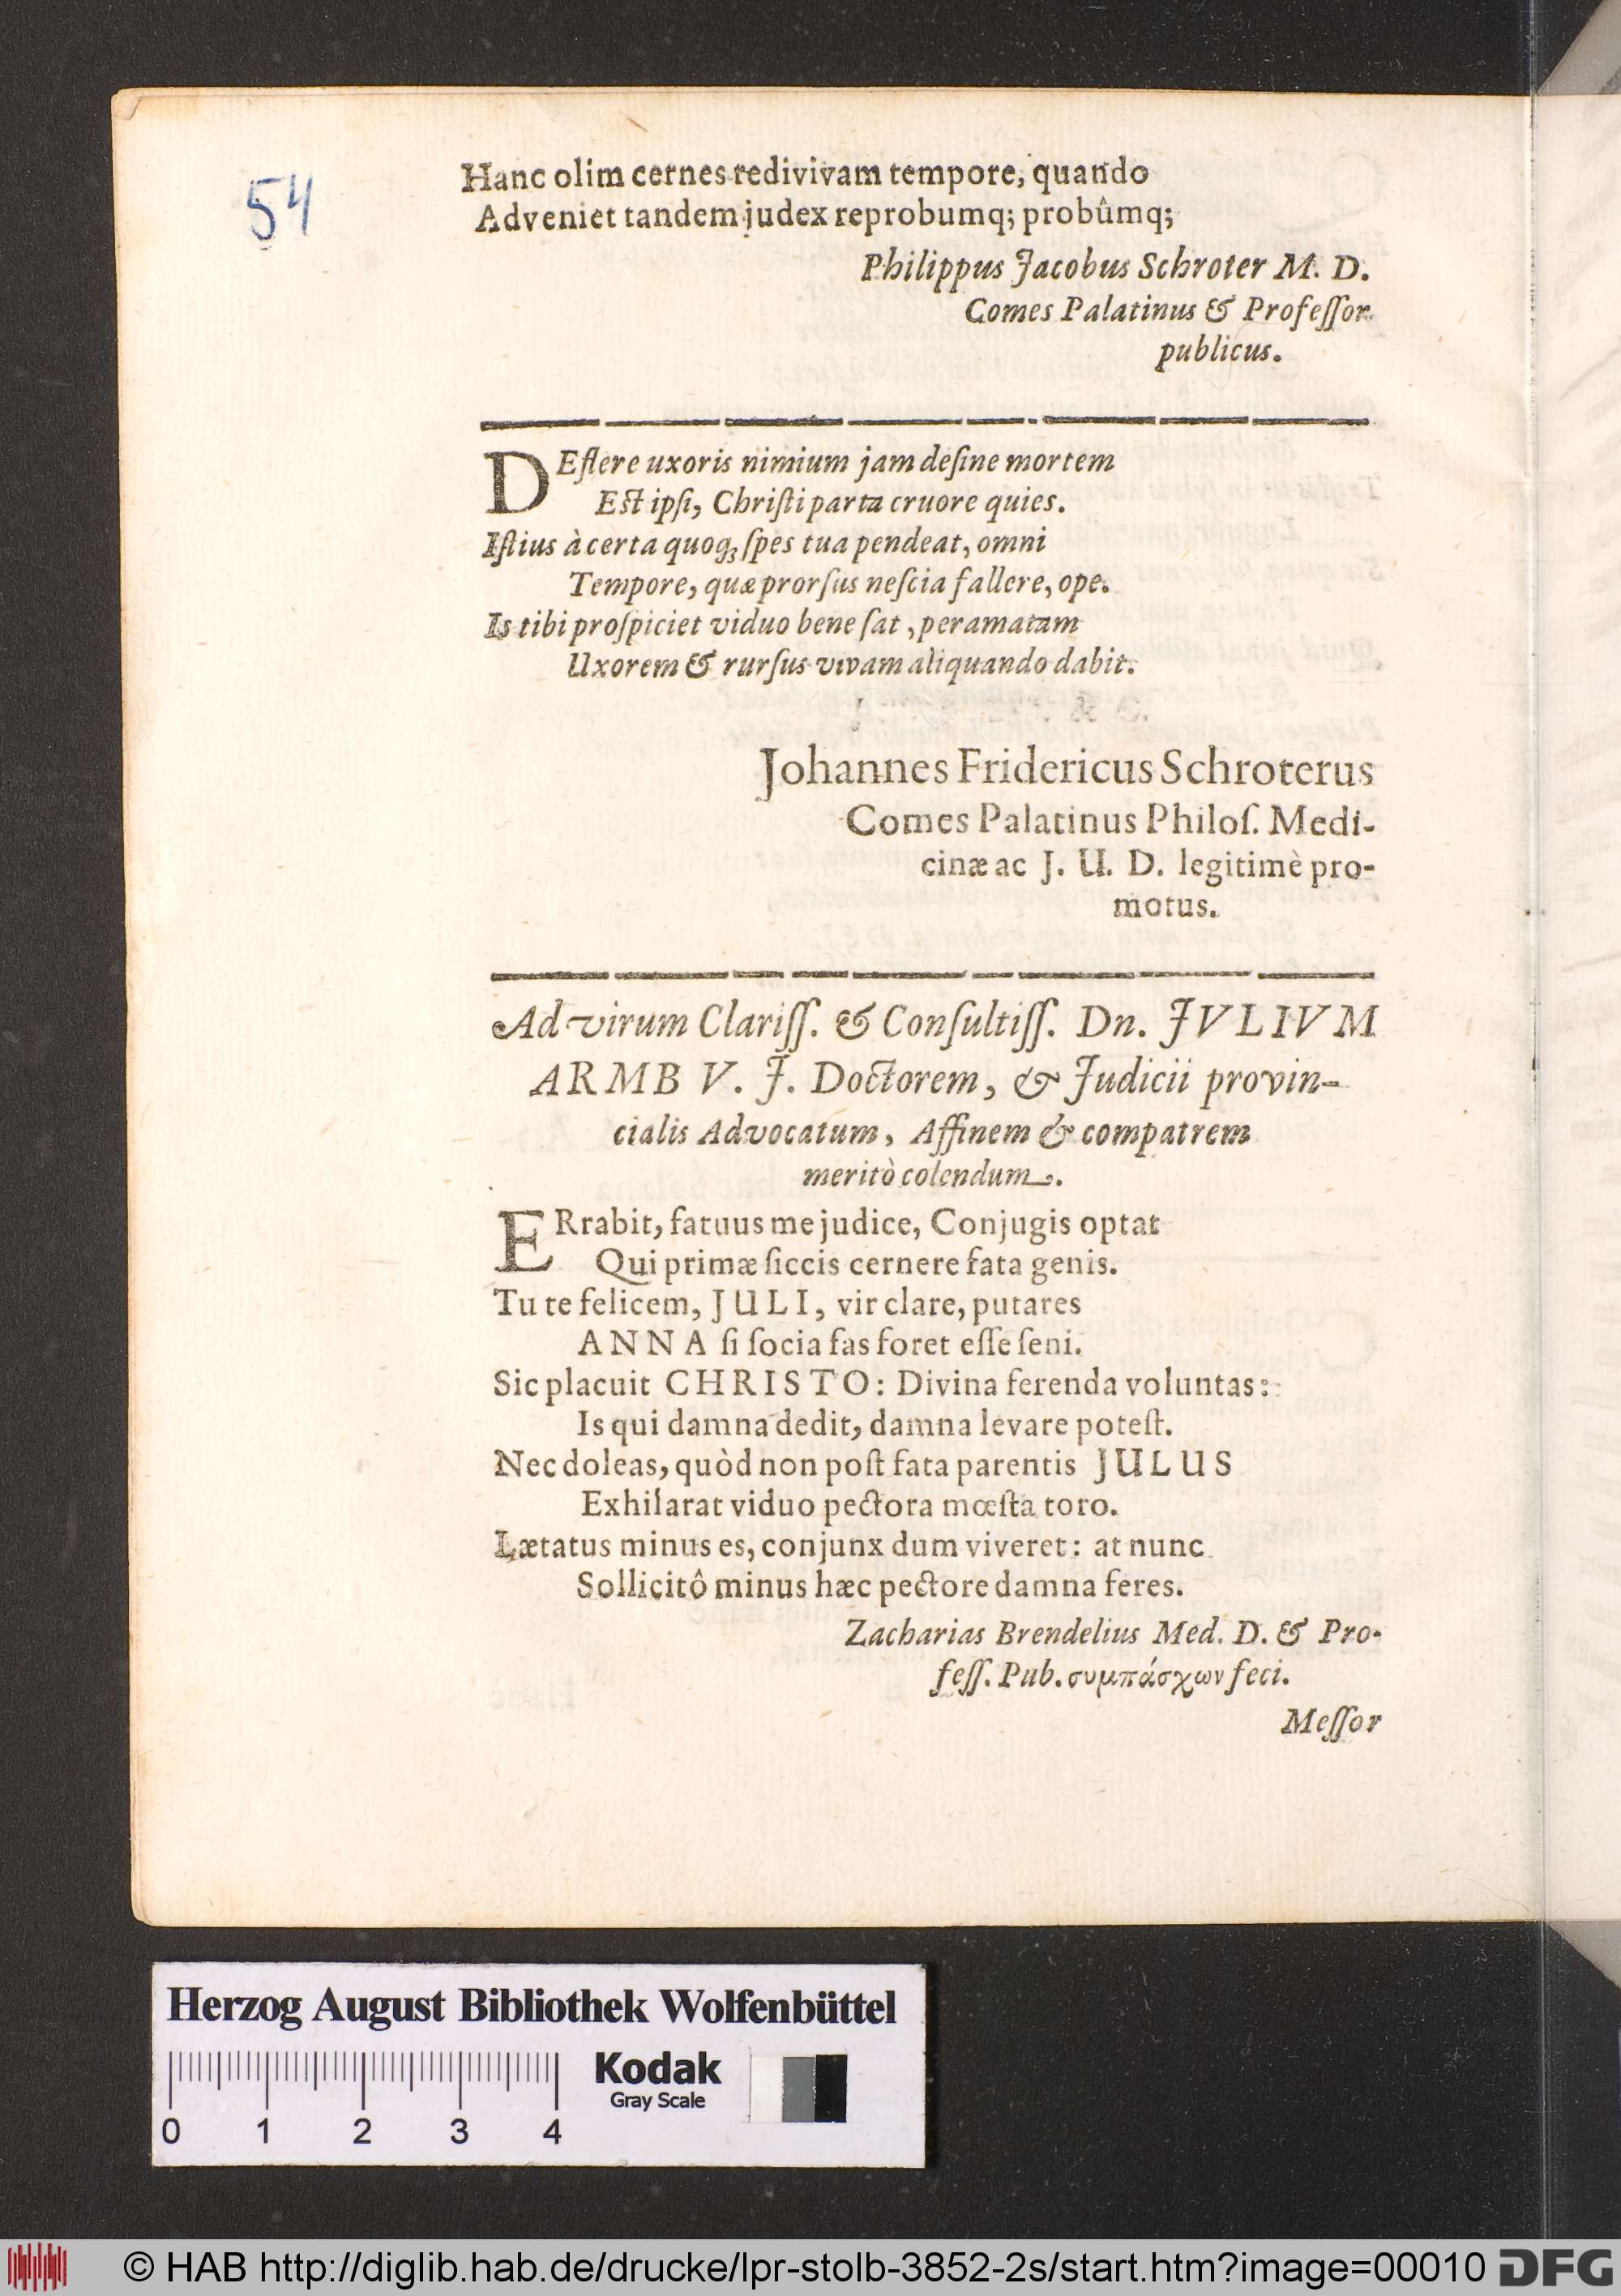 54
Hanc olim cernes redivivam tempore, quando
Adveniet tandem judex reprobumq; probûmq;
Philippus Jacobus Schroter M. D.
Comes Palatinus & Profeſſor
publicus.
DEflere uxoris nimium jam deſine mortem
Eſt ipſi, Chriſti parta cruore quies.
Iſtius à certa quoq; ſpes tua pendeat, omni
Tempore, quæ prorſus neſcia fallere, ope.
Is tibi proſpiciet viduo bene ſat, peramatam
Uxorem & rurſus vivam aliquando dabit.
Johannes Fridericus Schroterus
Comes Palatinus Philoſ. Medi-
cinæ ac J. U. D. legitimè pro-
motus.
Ad virum Clariſſ. & Conſultiſſ. Dn. JVLIVM
ARMB V. J. Doctorem, & Judicii provin-
cialis Advocatum, Affinem & compatrem
meritò colendum.
ERrabit, fatuus me judice, Conjugis optat
Qui primæ ſiccis cernere fata genis.
Tu te felicem, JULI, vir clare, putares
ANNA ſi ſocia fas foret eſſe ſeni.
Sic placuit CHRISTO: Divina ferenda voluntas:
Is qui damna dedit, damna levare poteſt.
Nec doleas, quòd non poſt fata parentis JULUS
Exhilarat viduo pectora mœſta toro.
Lætatus minus es, conjunx dum viveret: at nunc
Sollicitô minus hæc pectore damna feres.
Zacharias Brendelius Med. D. & Pro-
feſſ. Pub. συμπάσχων feci.
Meſſor
Herzog August Bibliothek Wolfenbüttel
Kodak
Gray Scale
0 1 2 3 4
© HAB http://diglib.hab.de/drucke/lpr-stolb-3852-2s/start.htm?image=00010 DFG